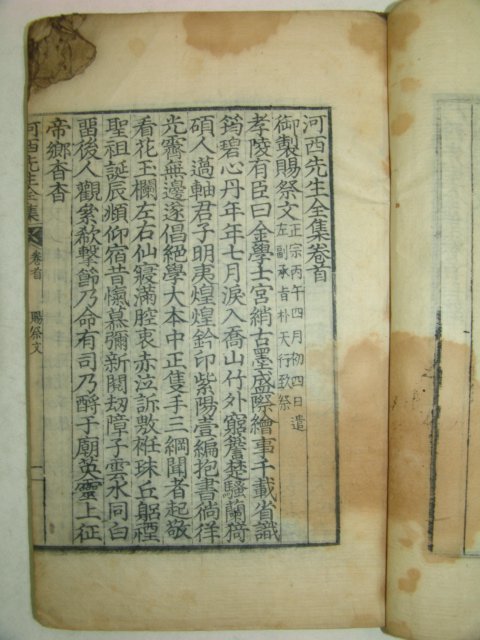 河西先生全集卷首
御製賜祭文 正宗丙午四月初四日遣
左副承旨朴天行致祭
孝陵有臣曰金學士宮綃古墨盛際繪事千載省識
筠碧心丹年年七月淚入喬山竹外窮簷楚騷蘭猗
碩人薖軸君子明夷煌煌鈐印紫陽壹編抱書徜徉
光霽無邊遂倡絕學大本中正隻手三綱聞者起敬
看花玉欄左右仙寢滿腔衷赤泣訴敷衽珠丘躬禋
聖祖誕辰頫仰宿昔愾慕彌新閱劫障子雲水同白
畱後人觀欷擊節乃命有司乃酹于廟英靈上征
帝鄉杳杳
河西先生全集 卷首 賜祭文 一